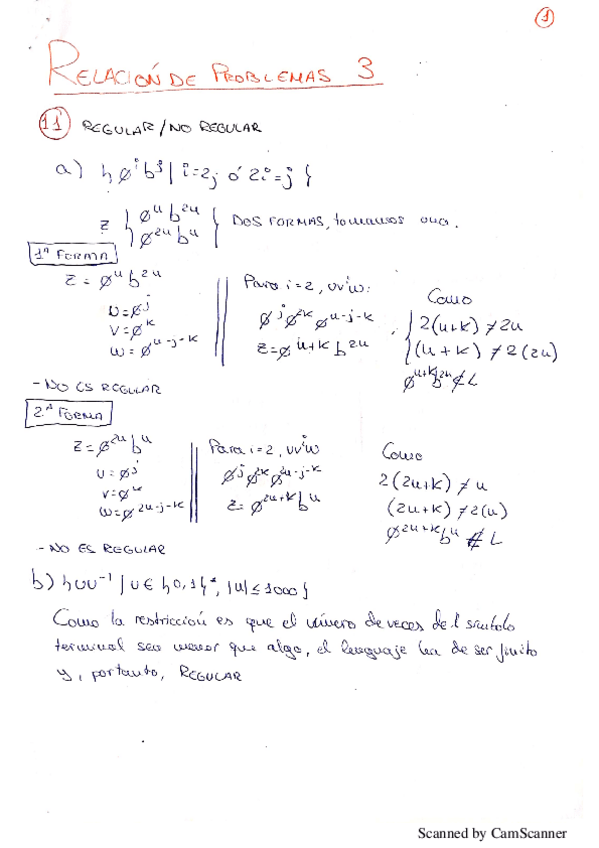 1
RELACIÓN DE PROBLEMAS 3
11 REGULAR/NO REGULAR
a) {0^i b^j | i=2j ó 2i=j}
z { 0^u b^2u } DOS FORMAS, tomamos una.
0^2u b^u
1ª FORMA
z = 0^u b^2u
u = 0^j
v = 0^k
w = 0^u-j-k
Para i=2, uv^i w:
0^j 0^2k 0^u-j-k
z = 0^u+k b^2u
Como
2(u+k) ≠ 2u
(u+k) ≠ 2(2u)
0^u+k b^2u ∉ L
- NO ES REGULAR
2ª FORMA
z = 0^2u b^u
u = 0^j
v = 0^k
w = 0^2u-j-k
Para i=2, uv^i w
0^j 0^2k 0^2u-j-k
z = 0^2u+k b^u
Como
2(2u+k) ≠ u
(2u+k) ≠ 2(u)
0^2u+k b^u ∉ L
- NO ES REGULAR
b) {uu^-1 | u ∈ {0,1}*, |u| ≤ 1000}
Como la restricción es que el número de veces del símbolo
terminal sea menor que algo, el lenguaje ha de ser finito
y, por tanto, REGULAR
Scanned by CamScanner